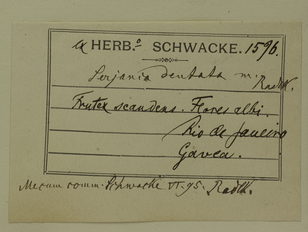 ex HERB.º SCHWACKE. 1596.
Serjania dentata m. Radlk.
Frutex scandens. Flores albi.
Rio de Janeiro
Gávea.
Mecum comm. Schwacke VI. 95. Radlk.